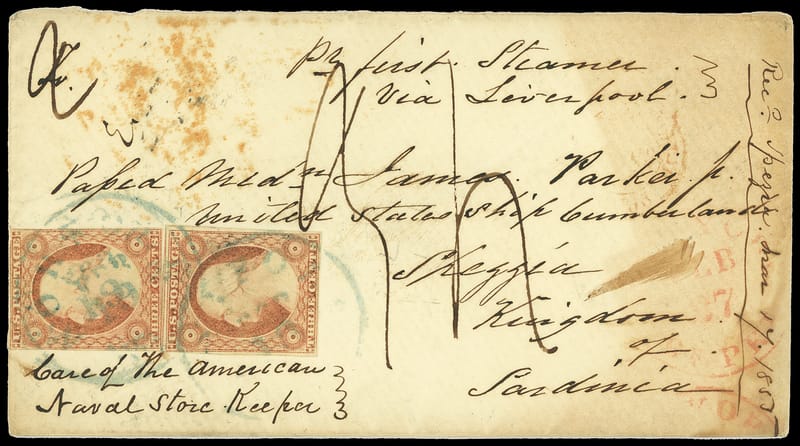 Pr first Steamer
Via Liverpool.
Paſsed Midn James Parker Jr.
United States Ship Cumberland
Spezzia
Kingdom
of
Sardinia
Care of The American
Naval Store Keeper
U.S. POSTAGE
THREE CENTS
U.S. POSTAGE
THREE CENTS
Recd. Spezia, Mar 17. 1855